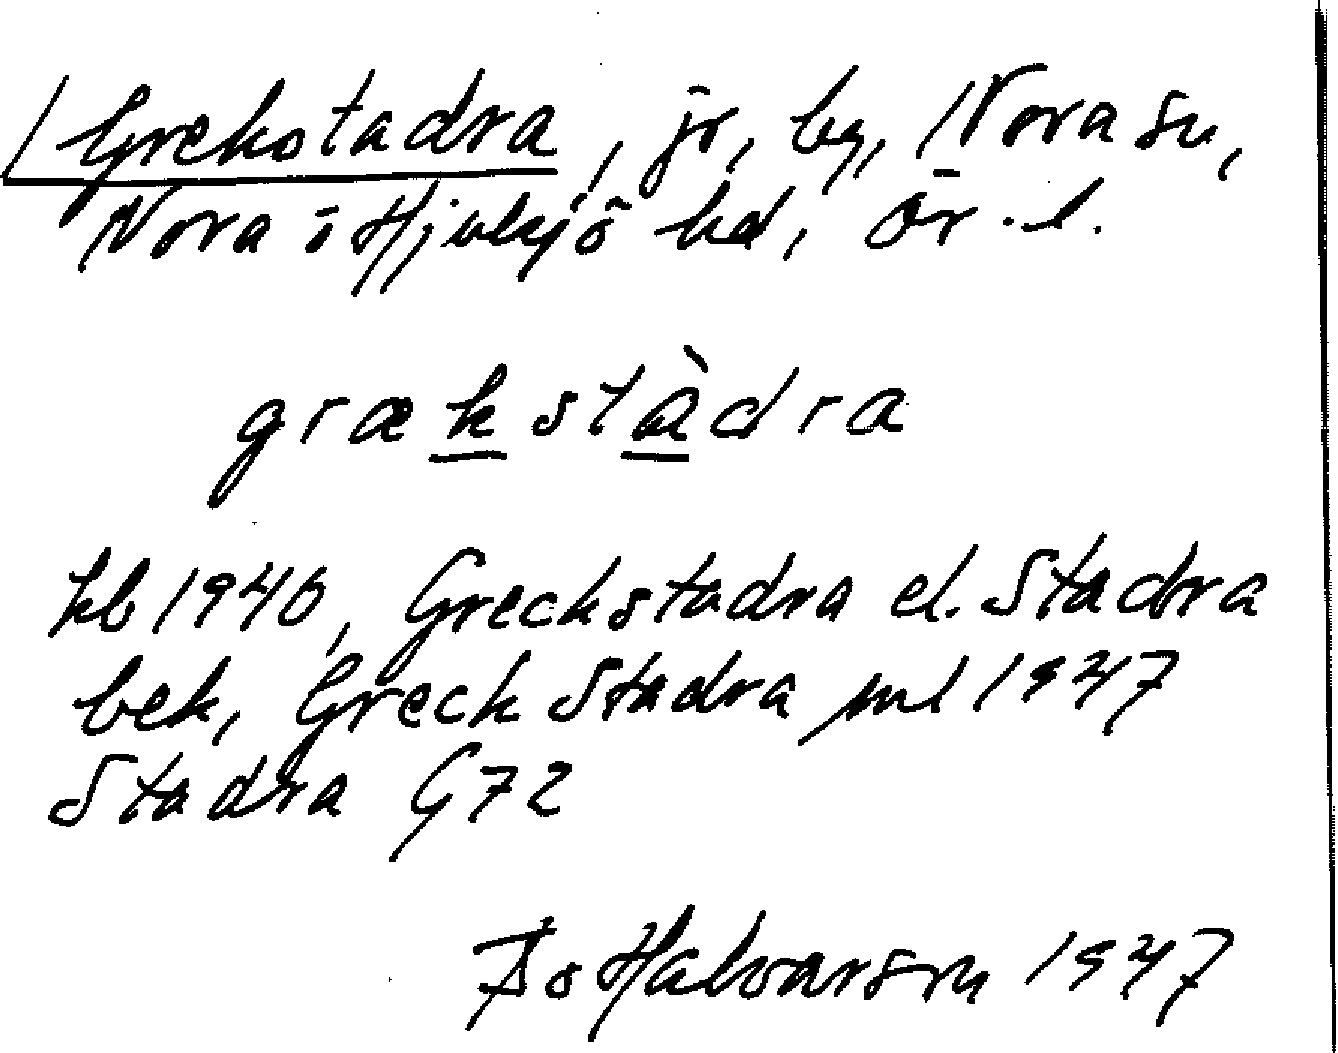 Grekstadra, jr, by, Nora sn,
Nora o Hjulsjö hd, Ör. l.
grækstàdra
kb 1946, Greckstadra el. Stadra
bek, Greck Stadra jml 1947
Stadra G72
Bo Halvarson 1947